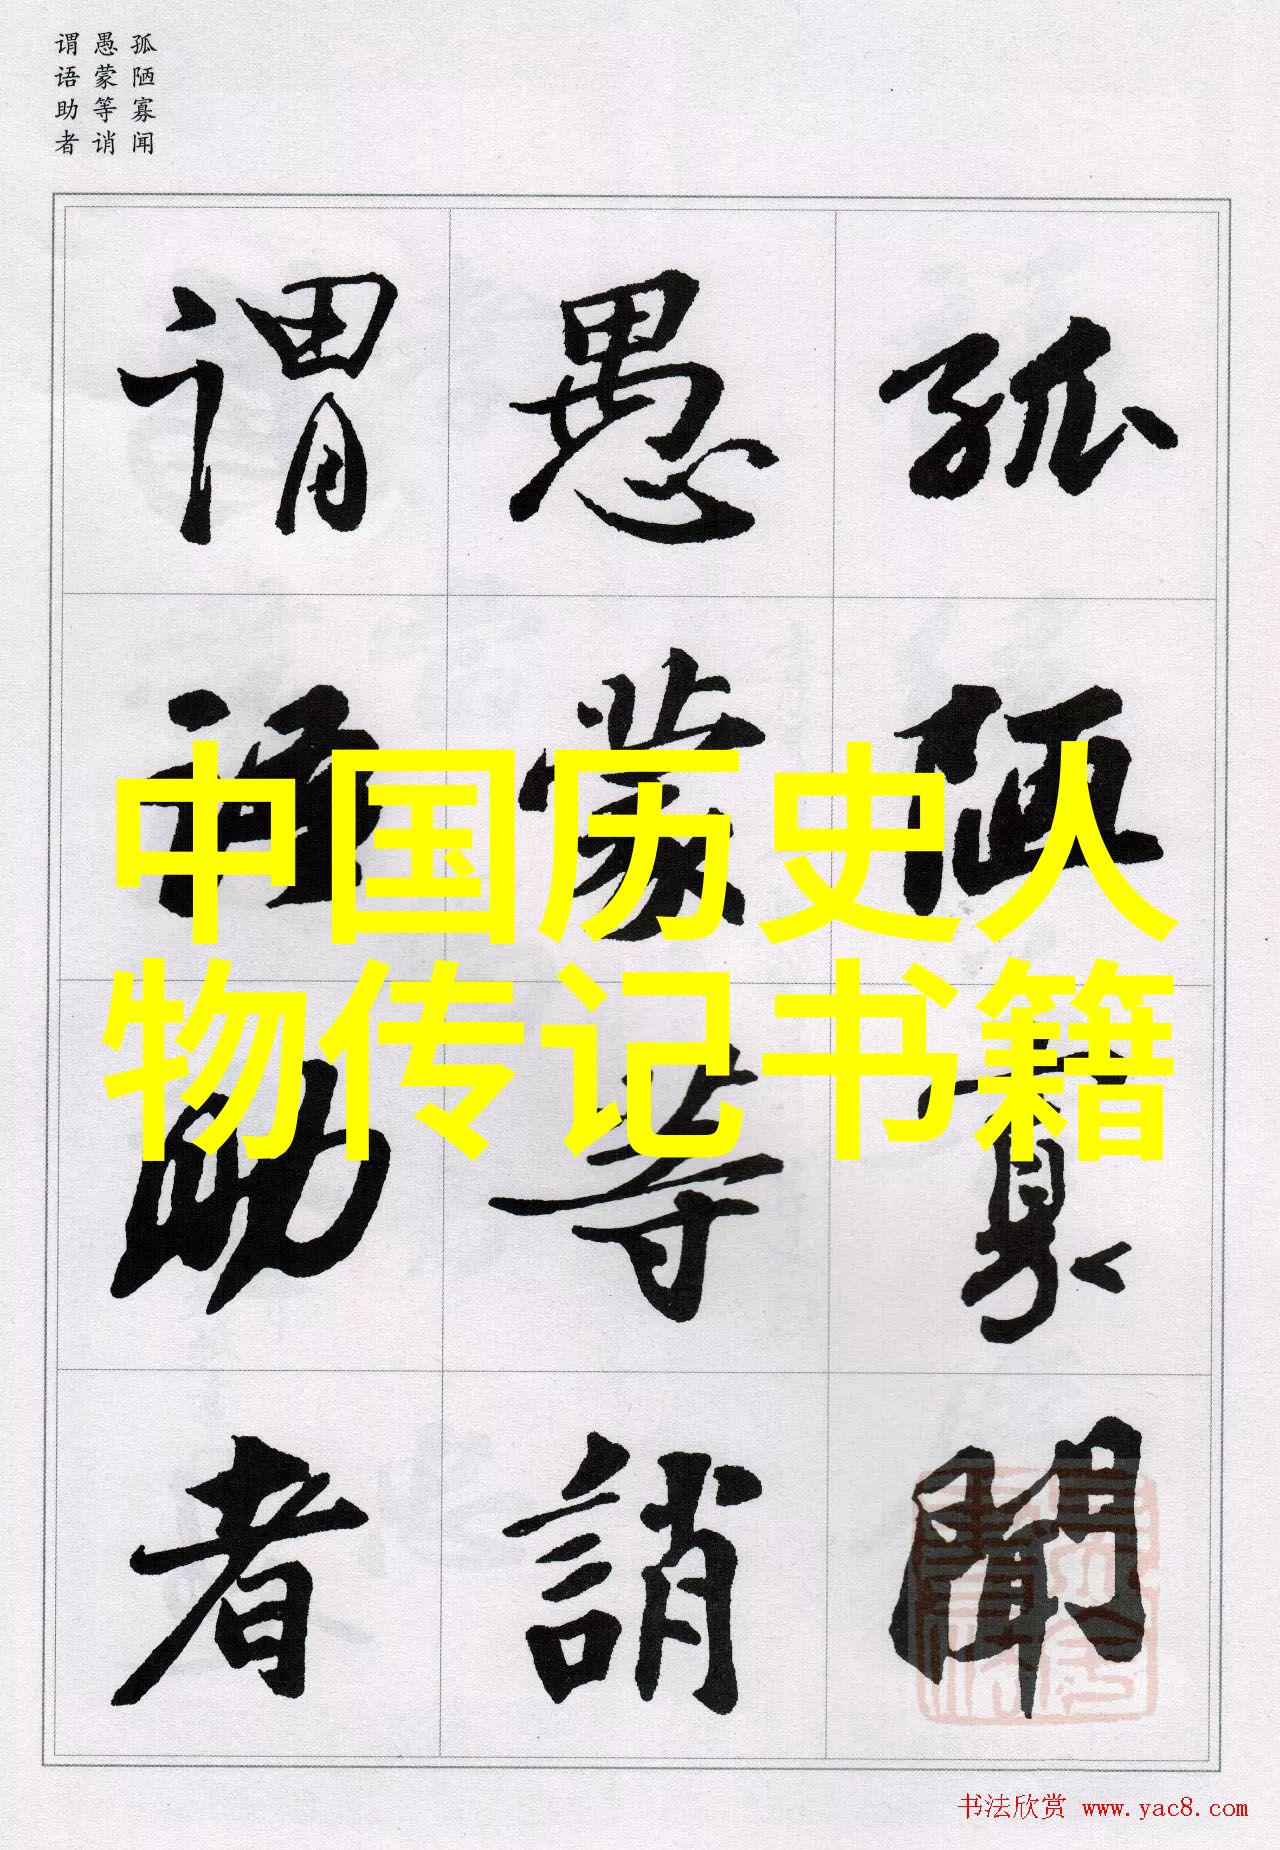 孤陋寡闻
愚蒙等诮
谓语助者
孤陋寡聞
愚蒙等誚
谓語助者
中国历史人
物传记书籍
书法欣赏 www.yac8.com